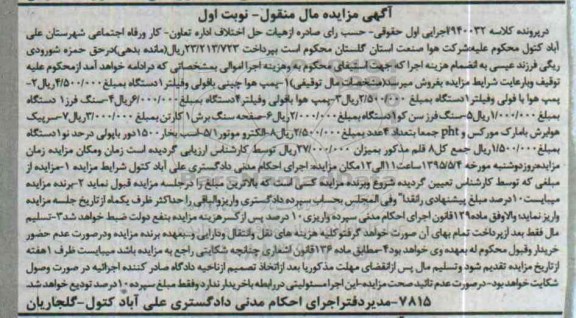 آگهی مزایده مال منقول- نوبت اول
درپرونده کلاسه ۹۴۰۰۳۲اجرایی اول حقوقی- حسب رای صادره ازهیات حل اختلاف اداره تعاون- کار ورفاه اجتماعی شهرستان علی
آباد کتول محکوم علیه شرکت هوا صنعت استان گلستان محکوم است بپرداخت ۲۳/۲۱۳/۷۲۳ریال(مانده بدهی)درحق حمزه شورودی
ریگی فرزند عیسی به انضمام هزینه اجرا که جهت استیفای محکوم به وهزینه اجرا اموالی بمشخصاتی که درادامه خواهد آمد ازمحکوم علیه
توقیف وبارعایت شرایط مزایده بفروش میرسد(مشخصات مال توقیفی)۱-پمپ هوا چینی باقولی وفیلتر۱دستگاه بمبلغ ۴/۵۰۰/۰۰۰ریال۲-
پمپ هوا با قولی وفیلتر۱دستگاه بمبلغ ۲/۵۰۰/۰۰۰ ریال۳-پمپ هوا باقولی وفیلتر۴دستگاه بمبلغ۶/۰۰۰/۰۰۰ریال۴-سنگ فرز۱ دستگاه
بمبلغ ۱/۰۰۰/۰۰۰ریال۵-سنگ فرز سن کو۱دستگاه بمبلغ۲/۰۰۰/۰۰۰ریال۶-صفحه سنگ برش۱ کارتن بمبلغ ۳/۰۰۰/۰۰۰ریال۷-سرپیک
هوابرش بامارک مورکس و pht جمعا بتعداد ۴عدد بمبلغ۲/۵۰۰/۰۰۰ریال۸-الکترو موتور۵/۱اسب بخار ۱۵۰۰دور باپولی درحد نو۱دستگاه
بمبلغ ۱/۵۰۰/۰۰۰ریال جمع کل۸ قلم مذکور بمیزان ۲۷/۰۰۰/۰۰۰ریال توسط کارشناس ارزیابی گردیده است زمان ومکان مزایده زمان
مزایده روزدوشنبه مورخه ۱۳۹۵/۵/۴ازساعت۱۱الی۱۲مکان مزایده:اجرای احکام مدنی دادگستری علی آباد کتول شرایط مزایده ۱-مزایده از
مبلغی که توسط کارشناس تعیین گردیده شروع وبرنده مزایده کسی است که بالاترین مبلغ را درجلسه مزایده قبول نماید ۲-برنده مزایده
میبایست۱۰درصد مبلغ پیشنهادی رانقدا" وفی المجلس بحساب سپرده دادگستری واریزوالباقی را حداکثر ظرف یکماه ازتاریخ جلسه مزایده
واریز نماید والاوفق ماده۱۲۹قانون اجرای احکام مدنی سپرده واریزی ۱۰ درصد پس ازکسر هزینه مزایده بنفع دولت ضبط خواهد شد۳-تسلیم
مال فقط بعد ازپرداخت تمام بهای آن صورت خواهد گرفت وکلیه هزینه های نقل وانتقال ودارایی و... بعهده برنده مزایده ودرصورت عدم حضور
خریدار وقبول محکوم له بعهده وی خواهد بود۴-مطابق ماده ۱۳۶قانون اشعاری چنانچه شکایتی راجع به مزایده باشد میبایست ظرف ۱هفته
ازتاریخ مزایده تقدیم شود وتسلیم مال پس ازانقضای مهلت مذکوریا بعد ازاتخاذ تصمیم ازناحیه دادگاه صادر کننده اجرائیه در صورت وصول
شکایت خواهد بود- درصورت عدم تائید صحت مزایده-این اجرا مسئولیتی دررابطه باخریدار ندارد وفقط مبلغ سپرده ۱۰درصد تودیع خواهد شد.
۷۸۱۵-مدیردفتراجرای احکام مدنی دادگستری علی آباد کتول-گلجاریان